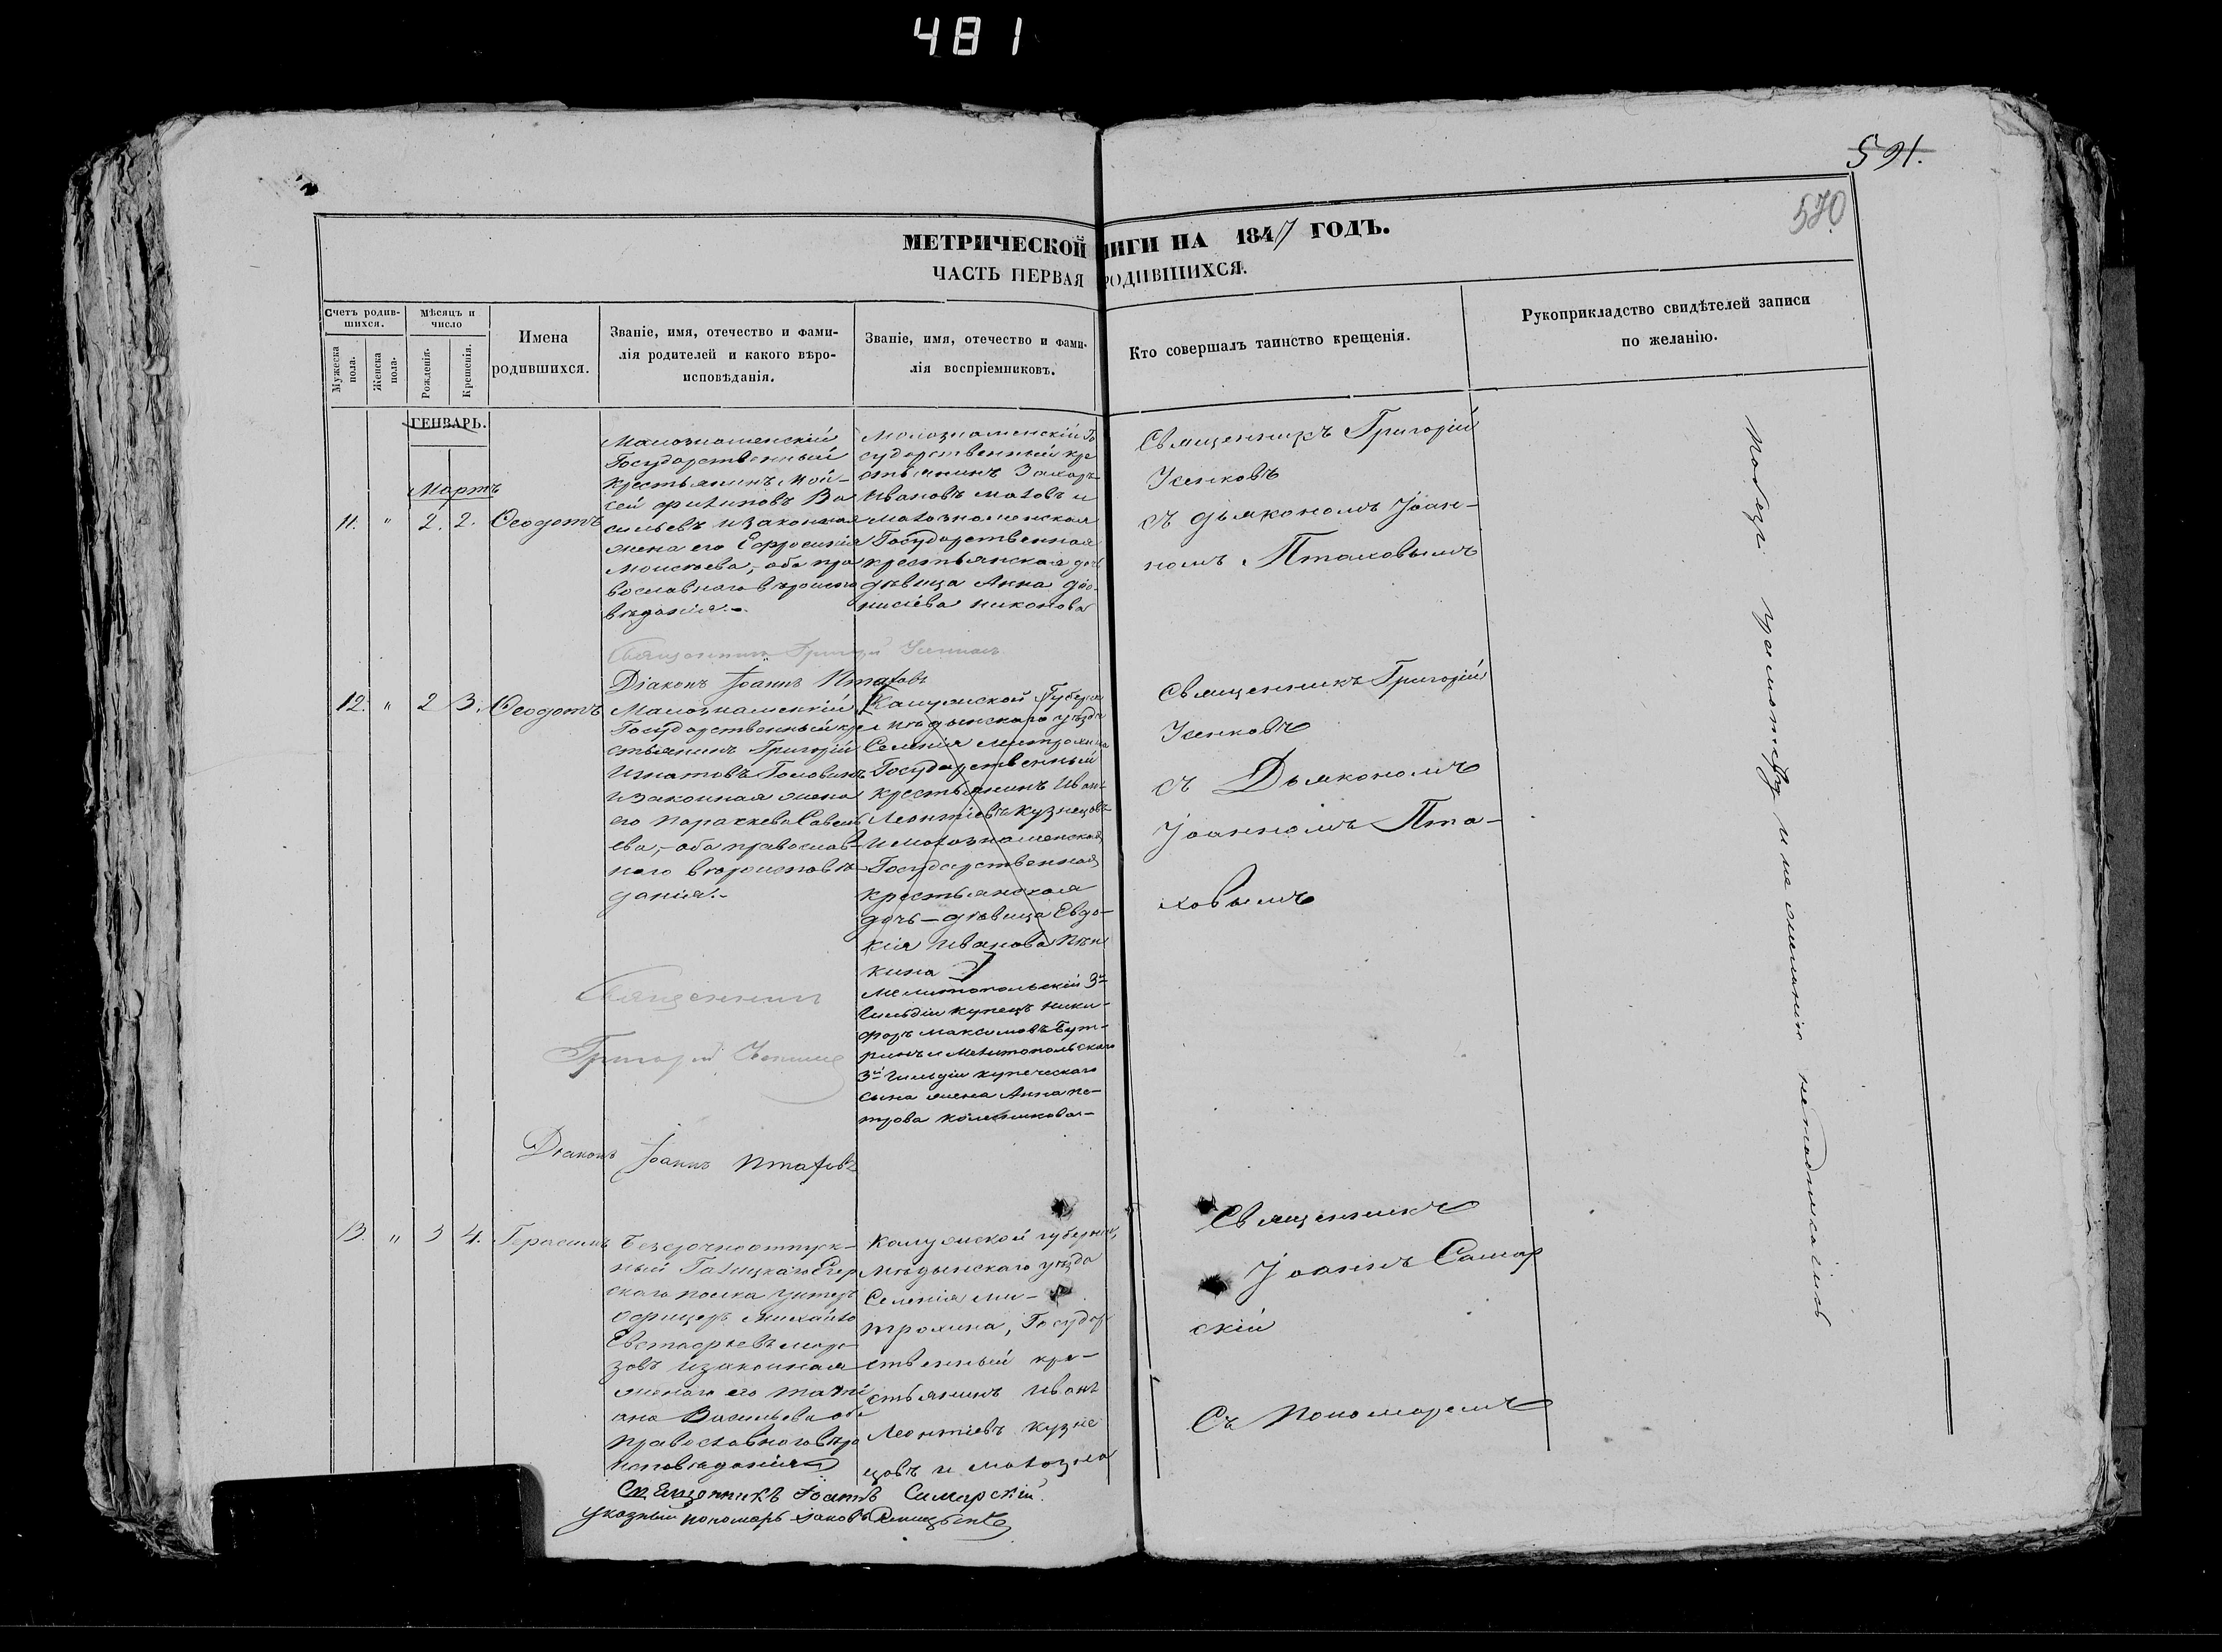 481
591.
570
МЕТРИЧЕСКОЙ НИГИ НА 1847 ГОДЪ.
ЧАСТЬ ПЕРВАЯ РОДИВШИХСЯ.
Счетъ родив-
шихся.
Мужеска
пола.
Женска
пола.
Мѣсяцъ и
число
Рожденія.
Крещенія.
Имена
родившихся.
Званіе, имя, отечество и фами-
лія родителей и какого вѣро-
исповѣданія.
Званіе, имя, отечество и фами-
лія воспріемниковъ.
Кто совершалъ таинство крещенія.
Рукоприкладство свидѣтелей записи
по желанію.
ГЕНВАРЬ.
Мартъ
11. " 2. 2. Ѳеодотъ
Малознаменскій
Государственный
крестьянинъ Мои-
сей Филиповъ Ва
сильевъ и законная
жена его Ефросинія
Моисеева, оба пра
вославнаго вѣроиспо
вѣданія.-
Малознаменскій Го
сударственный кре
стьянинъ Захаръ
Ивановъ Маловъ и
малознаменская
Государственная
крестьянская дочь
дѣвица Анна Діо-
нисіева Никонова
Священникъ Григорій
Усенковъ
съ дьякономъ Іоан-
номъ Птаховымъ
Священникъ Григорій
Діаконъ Іоаннъ Птаховъ
12. " 2 3. Ѳеодотъ
Малознаменскій
Государственный кре
стьянинъ Григорій
Игнатовъ Головинъ
и законная жена
его Параскева Савель
ева, оба православ-
наго вѣроисповѣ-
данія.-
Калужской Губерніи
Мѣдынскаго уѣзда
Селенія Митрохина
Государственный
крестьянинъ Иванъ
Леонтіевъ Кузнецовъ
и малознаменская
Государственная
крестьянская
дочь - дѣвица Евдо-
кія Иванова
кина
Мелитопольскій 3й
Гильдіи купецъ Ники-
форъ Максимовъ
и Мелитопольскаго
3й Гильдіи купеческаго
сына жена Анна Пе-
трова
Священникъ Григорій
Усенковъ
съ Дьякономъ
Іоанномъ Пта-
ховымъ
Священникъ
Григорій
Діаконъ Іоаннъ Птаховъ
13. " 3 4. Герасимъ
Безсрочноотпуск-
ный Галицкаго Егер
скаго полка унтеръ
офицеръ Михайло
Евстафьевъ Моро-
зовъ и законная
жена его Тати
ана Васильева оба
православнаго вѣро
исповѣданія
Калужской губерніи,
Мѣдынскаго уѣзда
Селенія Ми-
трохина, Государ
ственный кре-
стьянинъ Иванъ
Леонтіевъ Кузне
цовъ и малозна
Священникъ
Іоаннъ Самар
скій
Съ Пономаремъ
Священникъ Іоаннъ Самарскій.
Указный пономарь Іаковъ
По безграмотству и не